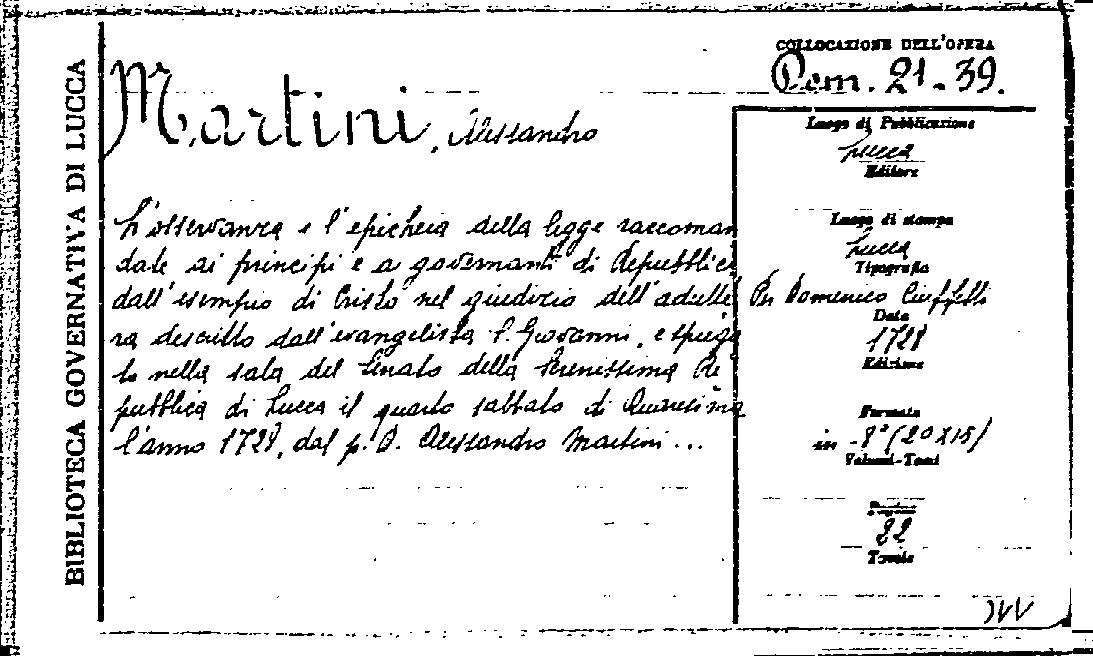 BIBLIOTECA GOVERNATIVA DI LUCCA
COLLOCAZIONE DELL'OPERA
21-39.
Martini, Alessandro
L'osservanza e l'epicheia della legge raccoman
date ai principi e a governanti di Repubblica
dall'esempio di Cristo nel giudizio dell'adulte
ra descritto dall'evangelista S. Giovanni, e spiega
to nella sala del Senato della Serenissima Re
pubblica di Lucca il quarto sabbato di Quaresima
l'anno 1728, dal p. D. Alessandro Martini...
Luogo di Pubblicazione
Lucca
Editore
Luogo di stampa
Lucca
Tipografia
Per Domenico Ciuffetti
Data
1728
Edizione
Formato
in -8° (20X15)
Volumi-Tomi
22
Tavole